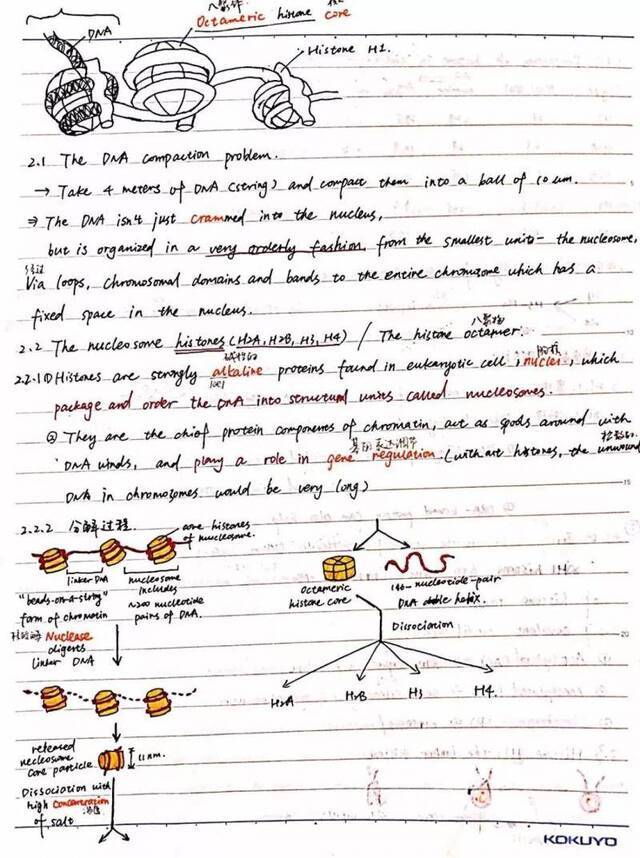 八聚体
Octameric histone core
DNA
Histone H1.
2.1 The DNA compaction problem.
→ Take 4 meters of DNA (string) and compact them into a ball of 10 um.
⇒ The DNA isn't just crammed into the nucleus,
but is organized in a very orderly fashion, from the smallest unit - the nucleosome,
经过
Via loops, chromosomal domains and bands to the entire chromosome which has a
fixed space in the nucleus.
八聚物
2.2 The nucleosome histones (H2A, H2B, H3, H4) / The histone octamer.
碱性的
2.2.1 ① Histones are strongly alkaline proteins found in eukaryotic cell, nuclei, which
package and order the DNA into structural units called nucleosomes.
② They are the chief protein components of chromatin, act as spools around with
基因表达调节
DNA winds, and play a role in gene regulation. (without histones, the unwound
DNA in chromosomes would be very long)
2.2.2 分解过程.
core histones
of nucleosome.
linker DNA
nucleosome
includes
~200 nucleotide
pairs of DNA.
"beads-on-a-string"
form of chromatin
Nuclease
digests
linker DNA
released
necleosome
core particle
11 nm.
Dissociation with
high Concentration
of salt
octameric
histone core
146-nucleotide-pair
DNA double helix.
Dissociation
H2A
H2B
H3
H4.
5
10
15
20
KOKUYO